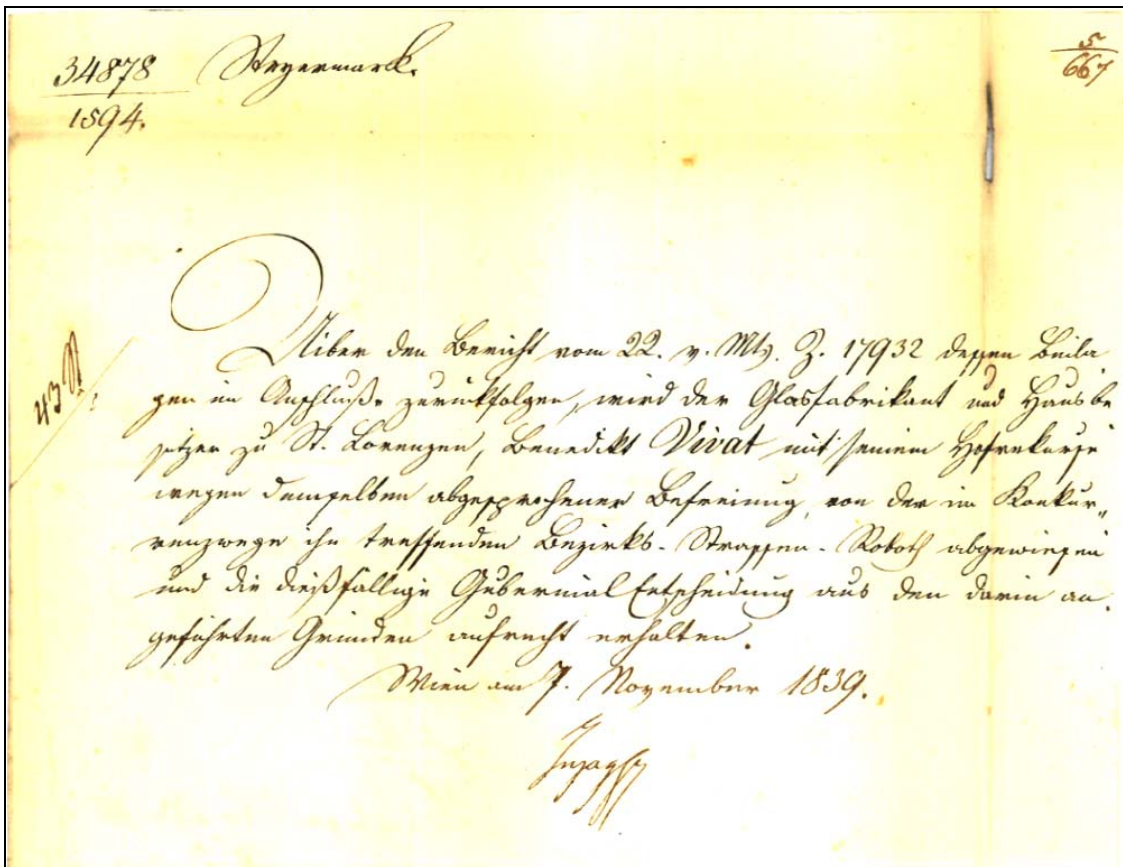 34878 Steyermark.
1594.
5
667
Uiber den Bericht vom 22. v. Mts. Z. 17932 dessen Beila
gen im Anschluße zurückfolgen, wird der Glasfabrikant und Hausbe
sitzer zu St. Lorenzen, Benedikt Vivat mit seinem Hofrekurse
wegen demselben abgesprochener Befreiung von der im Konkur„
renzwege ihn treffenden Bezirks-Strassen-Roboth abgewiesen
und die dießfällige Gubernial Entscheidung aus den darin an
geführten Gründen aufrecht erhalten.
Wien am 7. November 1839.